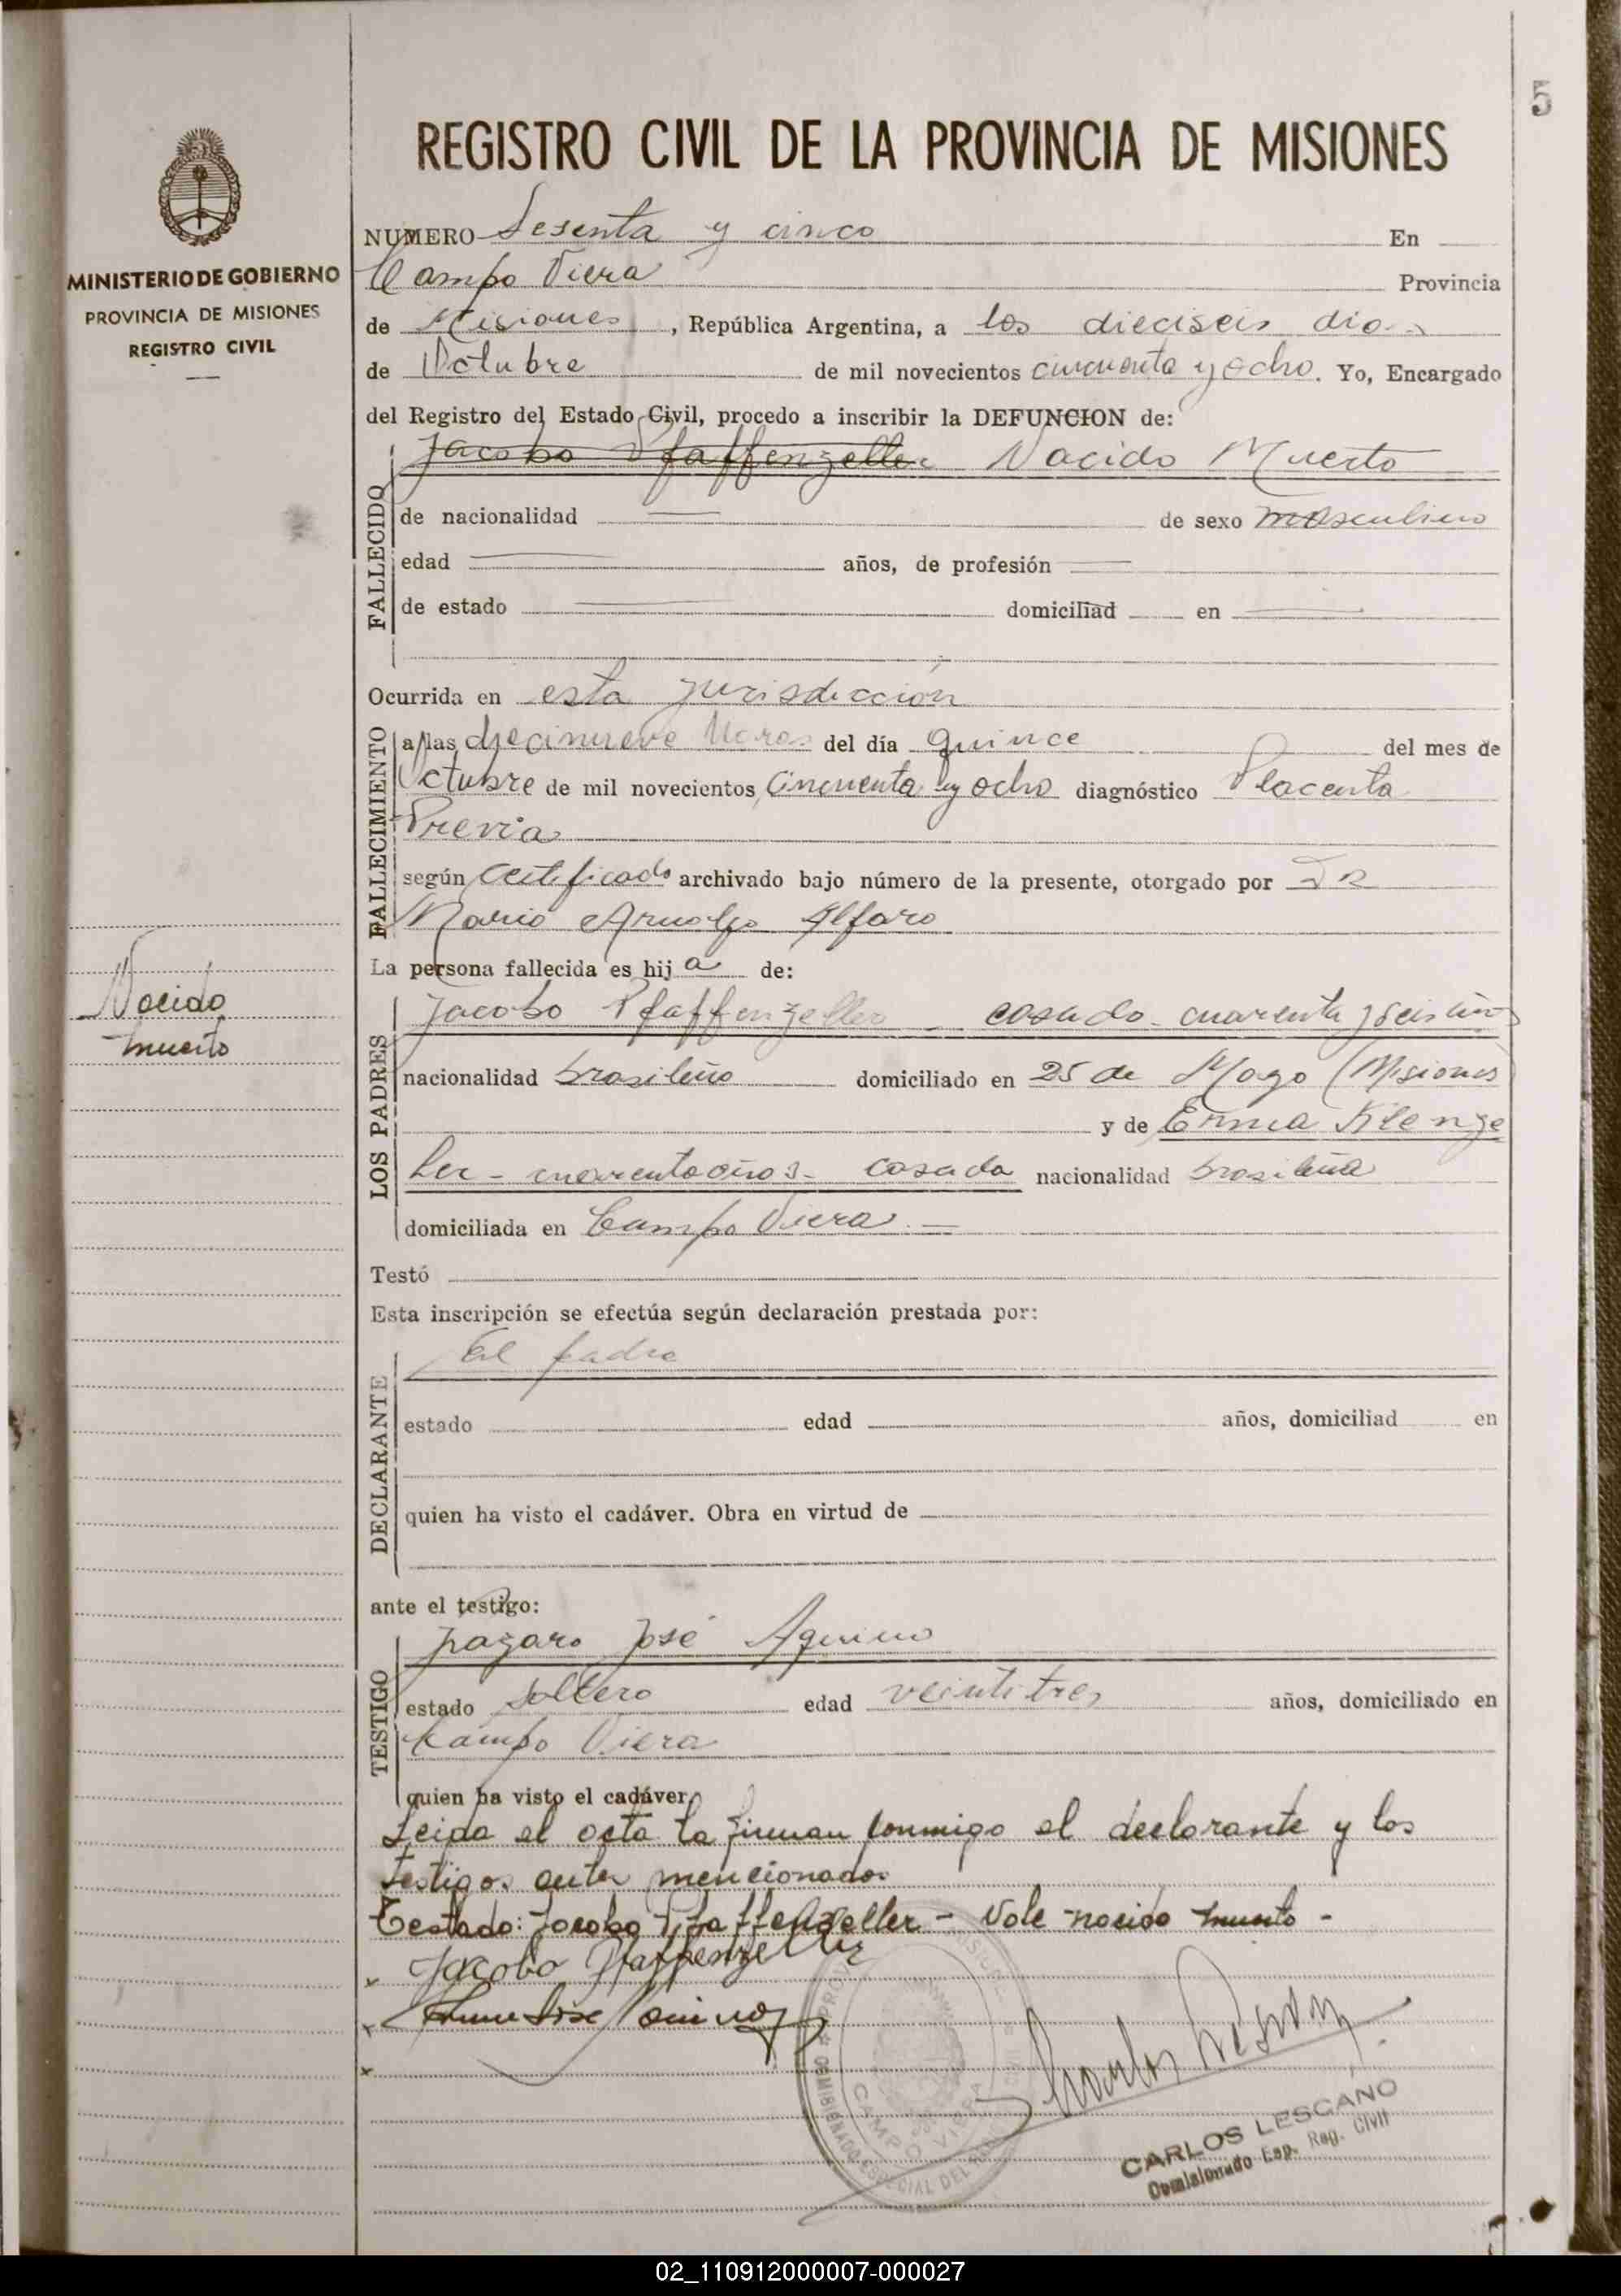 5
REGISTRO CIVIL DE LA PROVINCIA DE MISIONES
MINISTERIO DE GOBIERNO
PROVINCIA DE MISIONES
REGISTRO CIVIL
NUMERO Sesenta y cinco En
Campo Viera Provincia
de Misiones, República Argentina, a los dieciseis dias
de Octubre de mil novecientos cincuenta y ocho. Yo, Encargado
del Registro del Estado Civil, procedo a inscribir la DEFUNCION de:
Jacobo Pfaffenzeller Nacido Muerto
FALLECIDO
de nacionalidad de sexo masculino
edad años, de profesión
de estado domiciliad en
Ocurrida en esta jurisdicción
FALLECIMIENTO
a las diecinueve horas del día quince del mes de
Octubre de mil novecientos cincuenta y ocho diagnóstico Placenta
Previa
según certificado archivado bajo número de la presente, otorgado por Dr
Mario Arnolfo Alfaro
La persona fallecida es hij a de:
Nacido
muerto
LOS PADRES
Jacobo Pfaffenzeller casado - cuarenta y seis años
nacionalidad brasileño domiciliado en 25 de Mayo (Misiones)
y de Erma Klenze
ler - cuarenta años - casada nacionalidad brasileña
domiciliada en Campo Viera. -
Testó
Esta inscripción se efectúa según declaración prestada por:
El padre
DECLARANTE
estado edad años, domiciliad en
quien ha visto el cadáver. Obra en virtud de
ante el testigo:
José Aquino
TESTIGO
estado soltero edad veintitres años, domiciliado en
Campo Viera
quien ha visto el cadáver.
Leida el acta la firman conmigo el declarante y los
testigos antes mencionados
Testado: Jacobo Pfaffenzeller - Vale nacido muerto -
Jacobo Pfaffenzeller
CAMPO VIERA
CARLOS LESCANO
Comisionado Esp. Reg. Civil
02_110912000007-000027